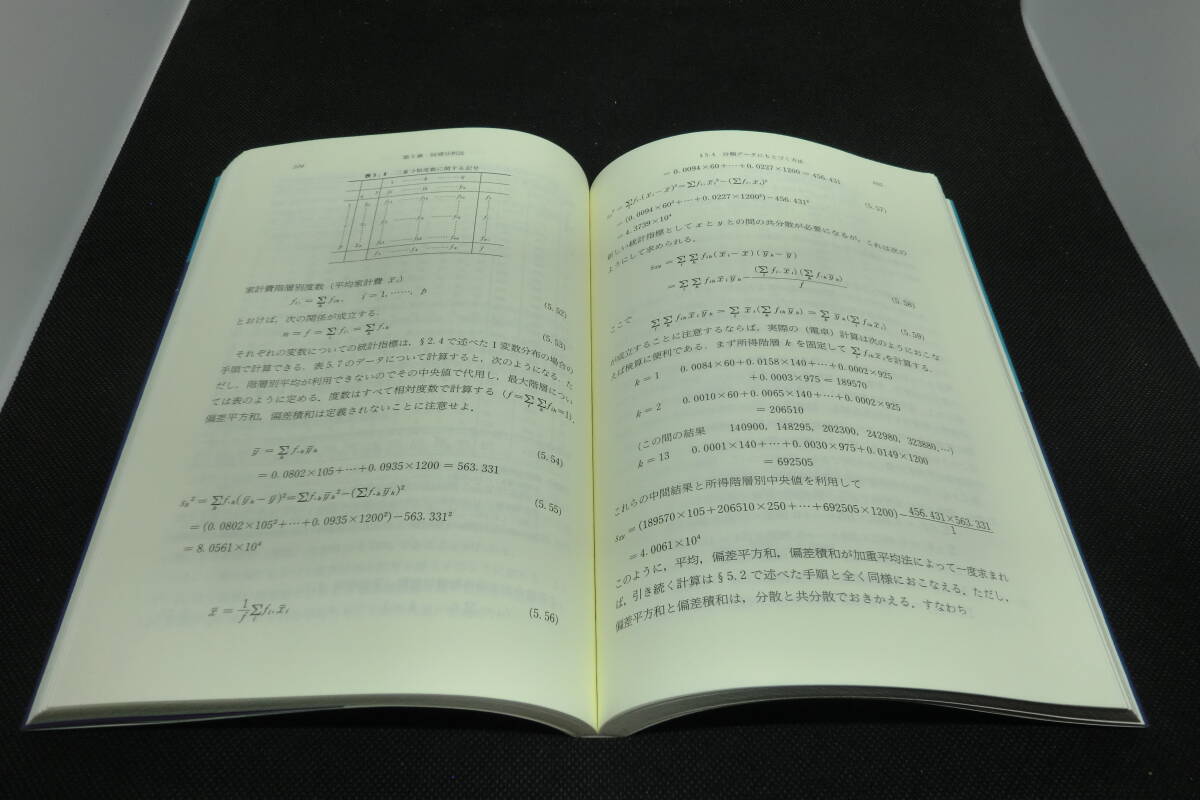 表5.8 二重分類度数に関する記号
家計費階層別度数（平均家計費 x̄ᵢ）
fᵢ. = Σₖ fᵢₖ, i = 1, ……, p (5.52)
とおけば，次の関係が成立する．
n = f = Σᵢ fᵢ. = Σₖ f.ₖ (5.53)
それぞれの変数についての統計指標は，§2.4で述べた1変数分布の場合の
手順で計算できる．表5.7のデータについて計算すると，次のようになる．た
だし，階層別平均が利用できないのでその中央値で代用し，最大階層につい
ては表のように定める．度数はすべて相対度数で計算する（f=ΣᵢΣₖfᵢₖ=1）．
偏差平方和，偏差積和は定義されないことに注意せよ．
ȳ = Σₖ f.ₖȳₖ
= 0.0802×105+…+0.0935×1200 = 563.331 (5.54)
= Σₖ f.ₖ(ȳₖ−ȳ)² = Σf.ₖȳₖ²−(Σf.ₖȳₖ)²
= (0.0802×105²+…+0.0935×1200²)−563.331² (5.55)
= 8.0561×10⁴
x̄ = 1/f Σᵢ fᵢ.x̄ᵢ (5.56)
§5.4 分類データにもとづく方法
= 0.0094×60+…+0.0227×1200 = 456.431
= Σᵢ fᵢ.(x̄ᵢ−x̄)² = Σfᵢ.x̄ᵢ²−(Σfᵢ.x̄ᵢ)²
= (0.0094×60²+…+0.0227×1200²)−456.431² (5.57)
= 4.3739×10⁴
新しい統計指標としてxとyとの間の共分散が必要になるが，これは次の
ようにして求められる．
= ΣᵢΣₖ fᵢₖ(x̄ᵢ−x̄)(ȳₖ−ȳ)
= ΣᵢΣₖ fᵢₖx̄ᵢȳₖ − (Σᵢ fᵢ.x̄ᵢ)(Σₖ f.ₖȳₖ)/f (5.58)
ここで
ΣᵢΣₖ fᵢₖx̄ᵢȳₖ = Σᵢ x̄ᵢ(Σₖ fᵢₖȳₖ) = Σₖ ȳₖ(Σᵢ fᵢₖx̄ᵢ) (5.59)
が成立することに注意するならば，実際の（電卓）計算は次のようにおこな
えば検算に便利である．まず所得階層 k を固定して Σᵢ fᵢₖx̄ᵢを計算する．
k = 1 0.0084×60+0.0158×140+…+0.0002×925
+0.0003×975 = 189570
k = 2 0.0010×60+0.0065×140+…+0.0002×925
= 206510
(この間の結果 140900, 148295, 202300, 242980, 323880, …)
k = 13 0.0001×140+…+0.0030×975+0.0149×1200
= 692505
これらの中間結果と所得階層別中央値を利用して
= (189570×105+206510×250+…+692505×1200) − 456.431×563.331/1
= 4.0061×10⁴
このように，平均，偏差平方和，偏差積和が加重平均法によって一度求まれ
ば，引き続く計算は§5.2で述べた手順と全く同様におこなえる．ただし，
偏差平方和と偏差積和は，分散と共分散でおきかえる．すなわち